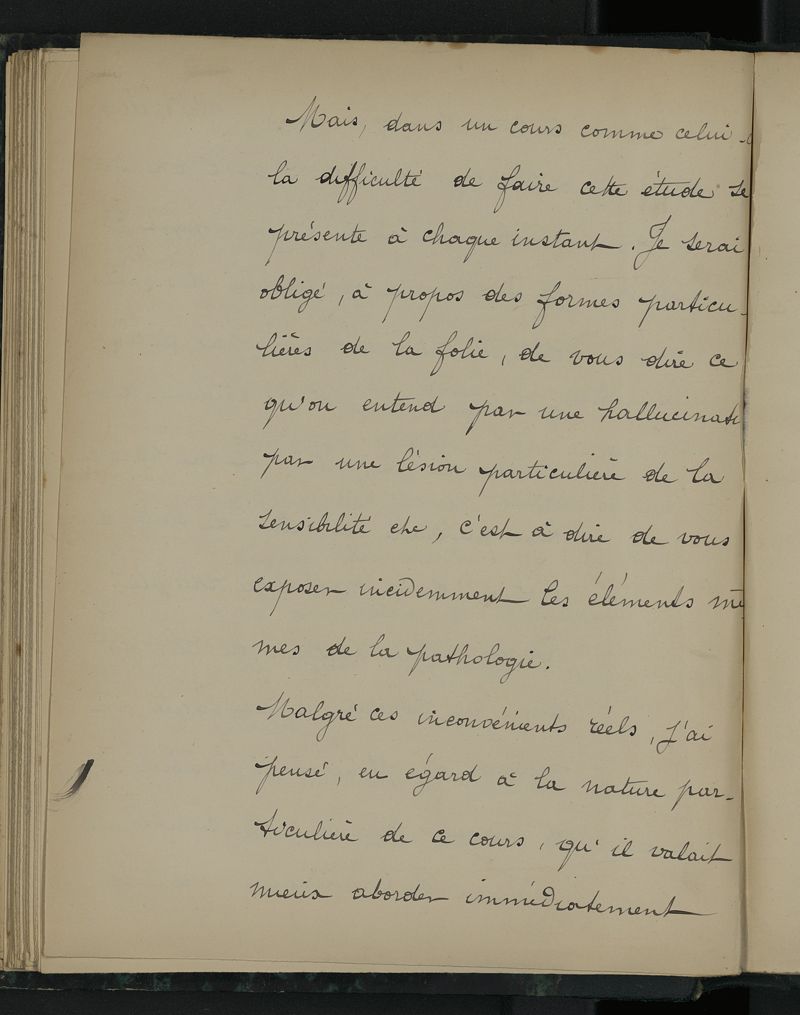 Mais, dans un cours comme celui-
la difficulté de faire cette étude se
présente à chaque instant. Je serai
obligé, à propos des formes particu-
lières de la folie, de vous dire ce
qu'on entend par une hallucinati
par une lésion particulière de la
sensibilité etc, c'est à dire de vous
exposer incidemment les éléments mê
mes de la pathologie.
Malgré ces inconvénients réels, j'ai
pensé, eu égard à la nature par-
ticulière de ce cours, qu'il valait
mieux aborder immédiatement